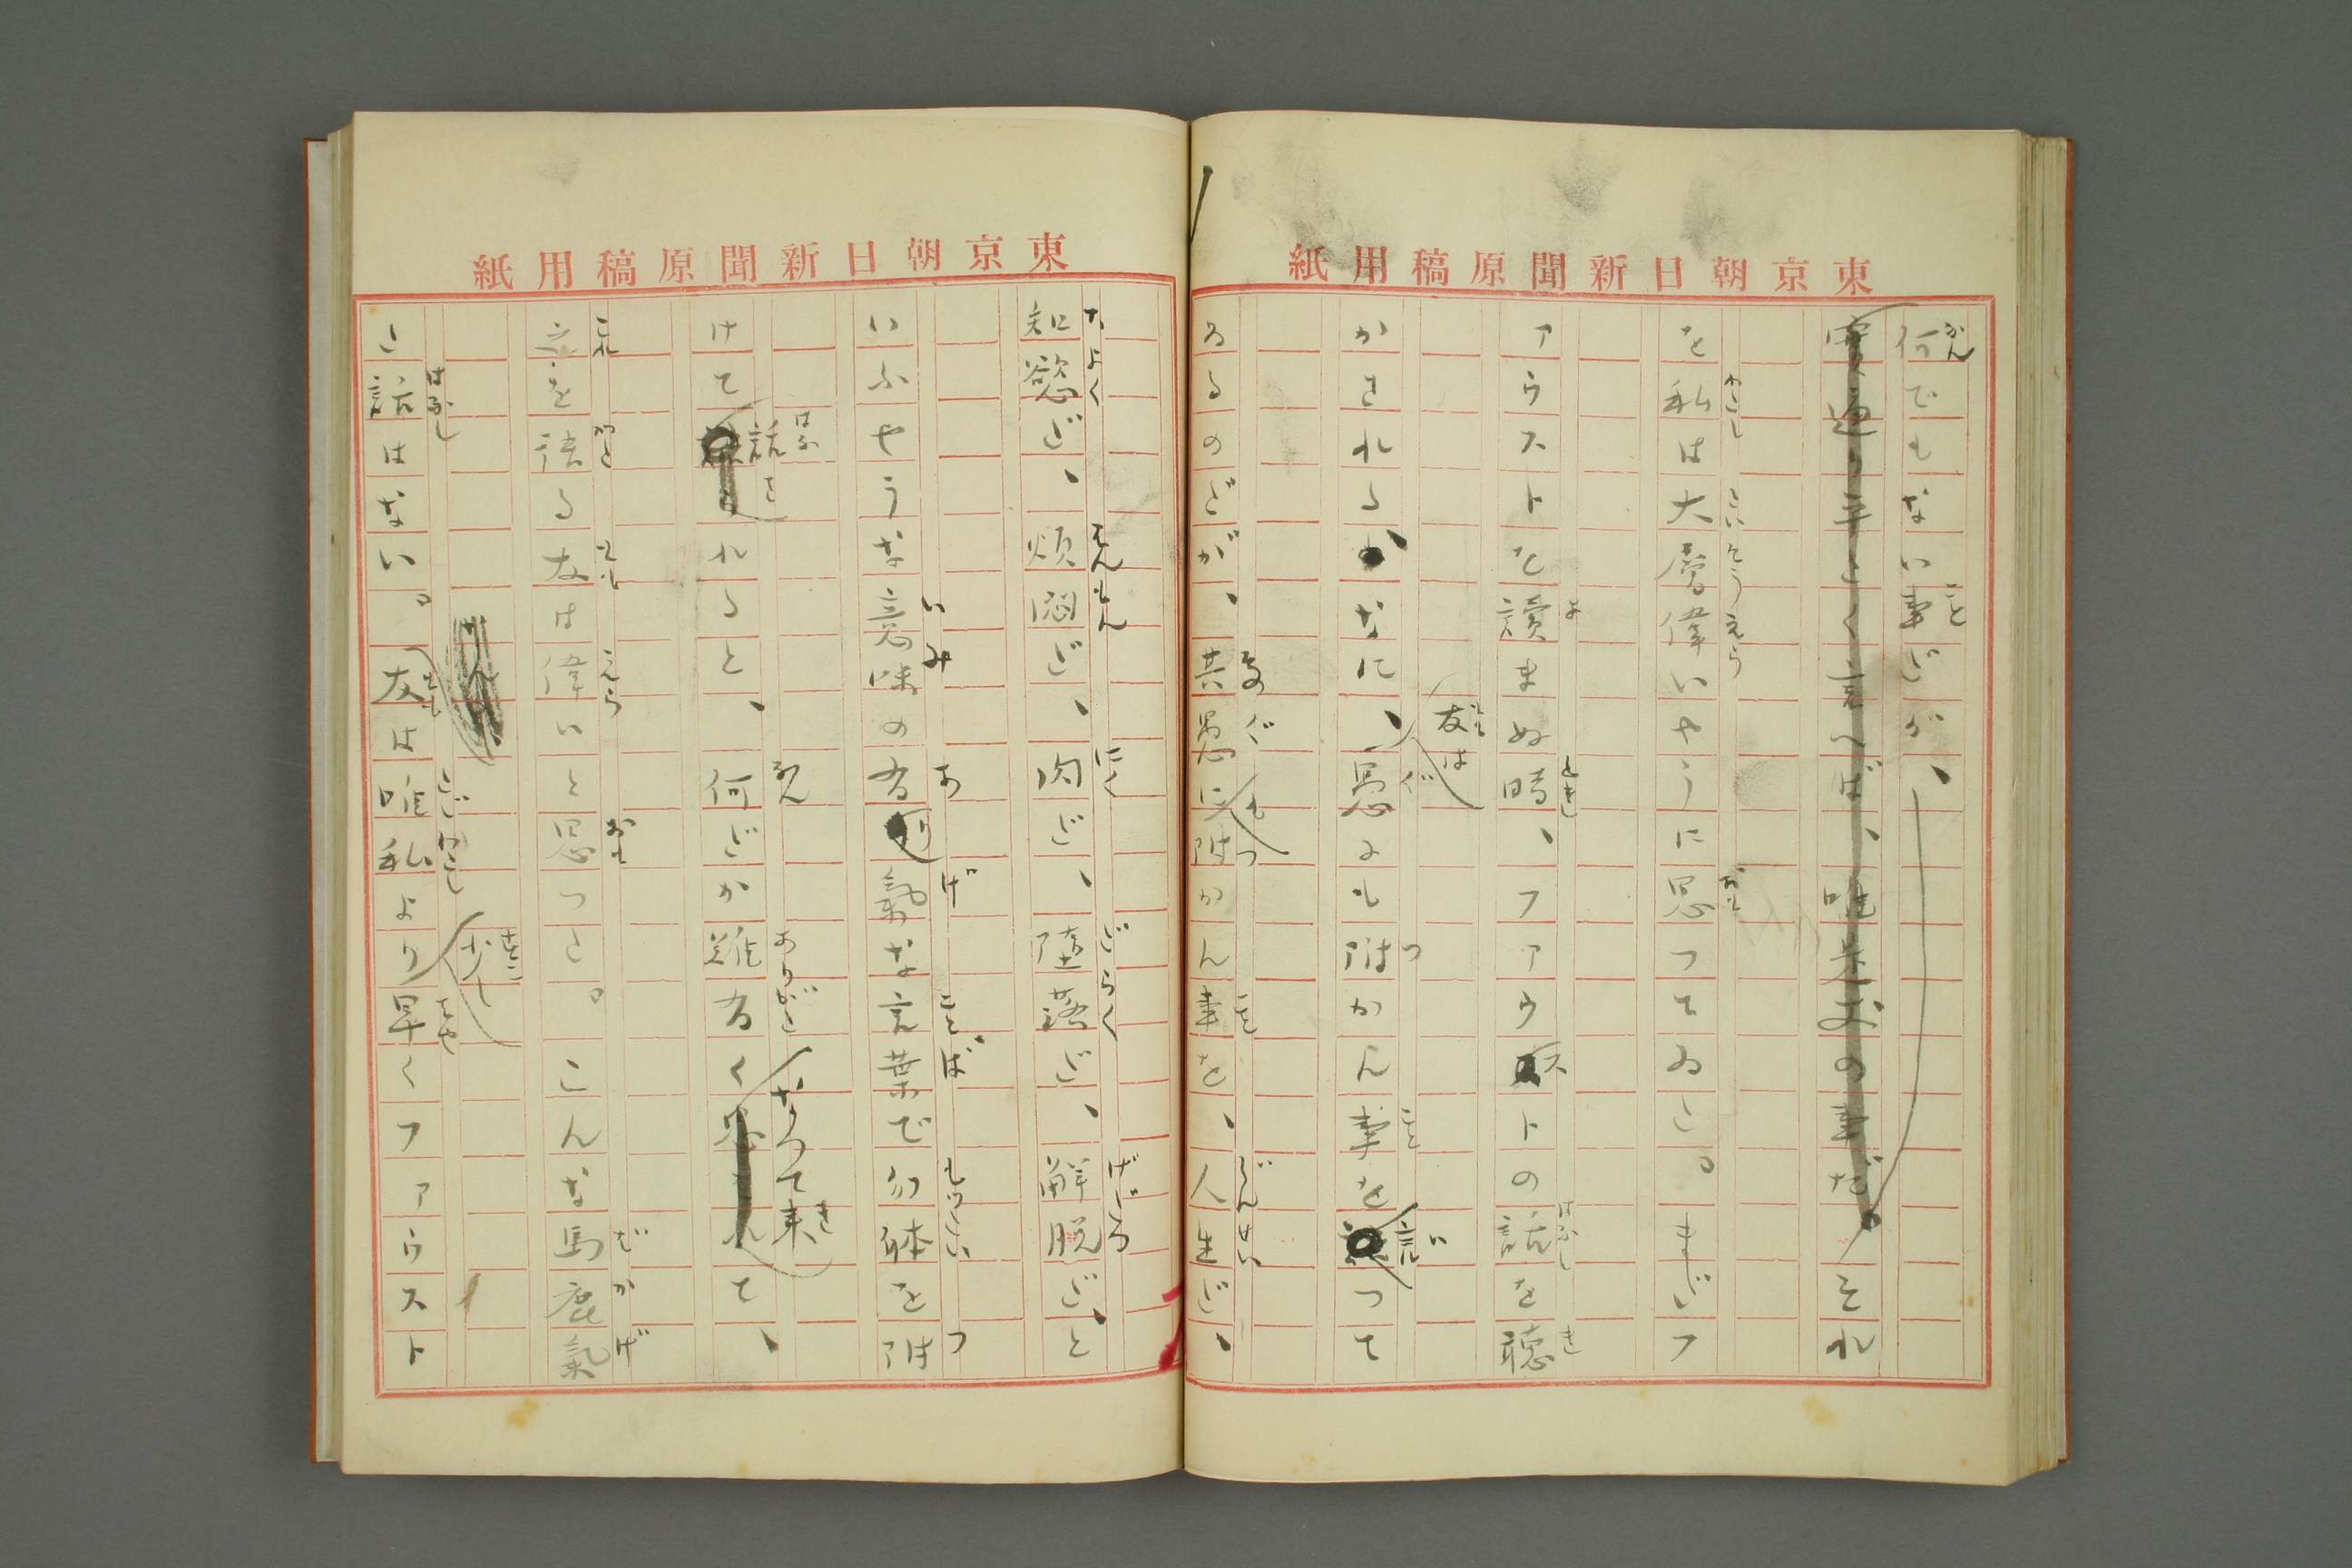 東京朝日新聞原稿用紙
何でもない事だが、
それ
を私は大層偉いやうに思つてゐた。まだフ
ァウストを読まぬ時、ファウストの話を聴
かされる、なに、友は愚にも附かん事を言つて
ゐるのだが、其愚にも附かん事を、人生だ、
東京朝日新聞原稿用紙
知慾だ、煩悶だ、肉だ、堕落だ、解脱だ、と
いふやうな意味の有り気な言葉で勿体を附
けて話されると、何だか難有くなつて来て、
之を語る友は偉いと思つた。こんな馬鹿気
た話はない。友は唯私より少し早くファウスト